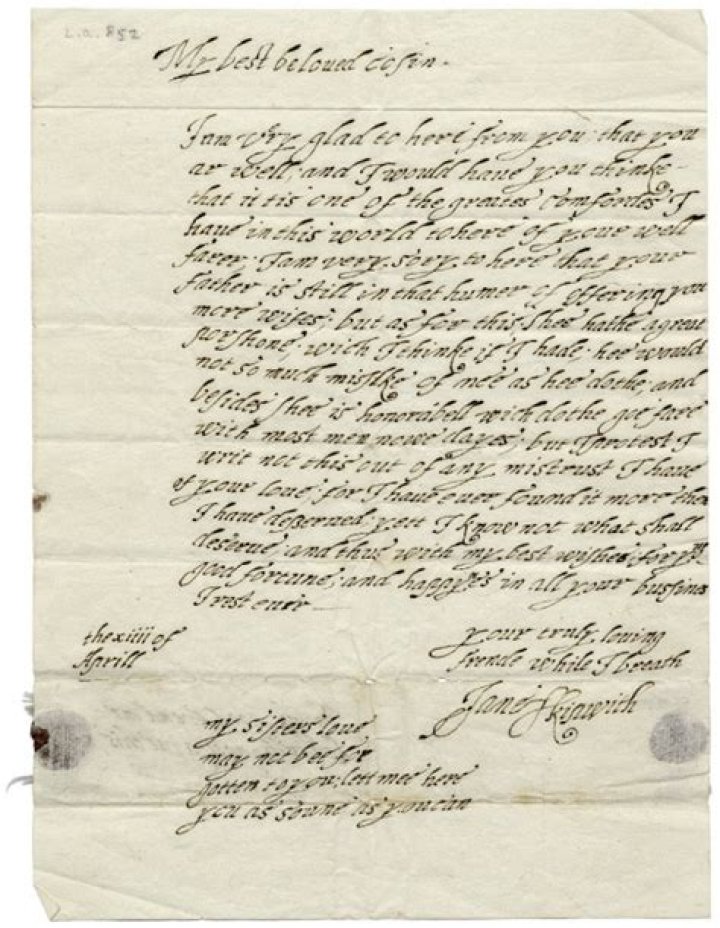 L.a. 852
My best beloued cosin.
I am very glad to here from you that you
ar well, and I would haue you thinke
that it tis one of the greates comfordes I
haue in this world to here of your well
farer. I am very sory to here that your
father is still in that humer of offering you
more wifes; but as for this shee hathe a great
porshone, wich I thinke if I hade, hee would
not so much mislike of mee as hee dothe, and
besides shee is honorabell wich dothe goe farre
with most men nowe dayes; but I protest I
writ not this out of any mistrust I haue
of your loue, for I haue euer found it more then
I haue deserued, yett I know not what I shall
deserue, and thus with my best wishes for your
good fortune, and happyes in all your bussines
I rest euer
the xiiii of
Aprill
your truly louing
frende while I breath
Jane Skipwith
my sisters loue
may not bee for
gotten to you; lett mee here
you as soune as you can